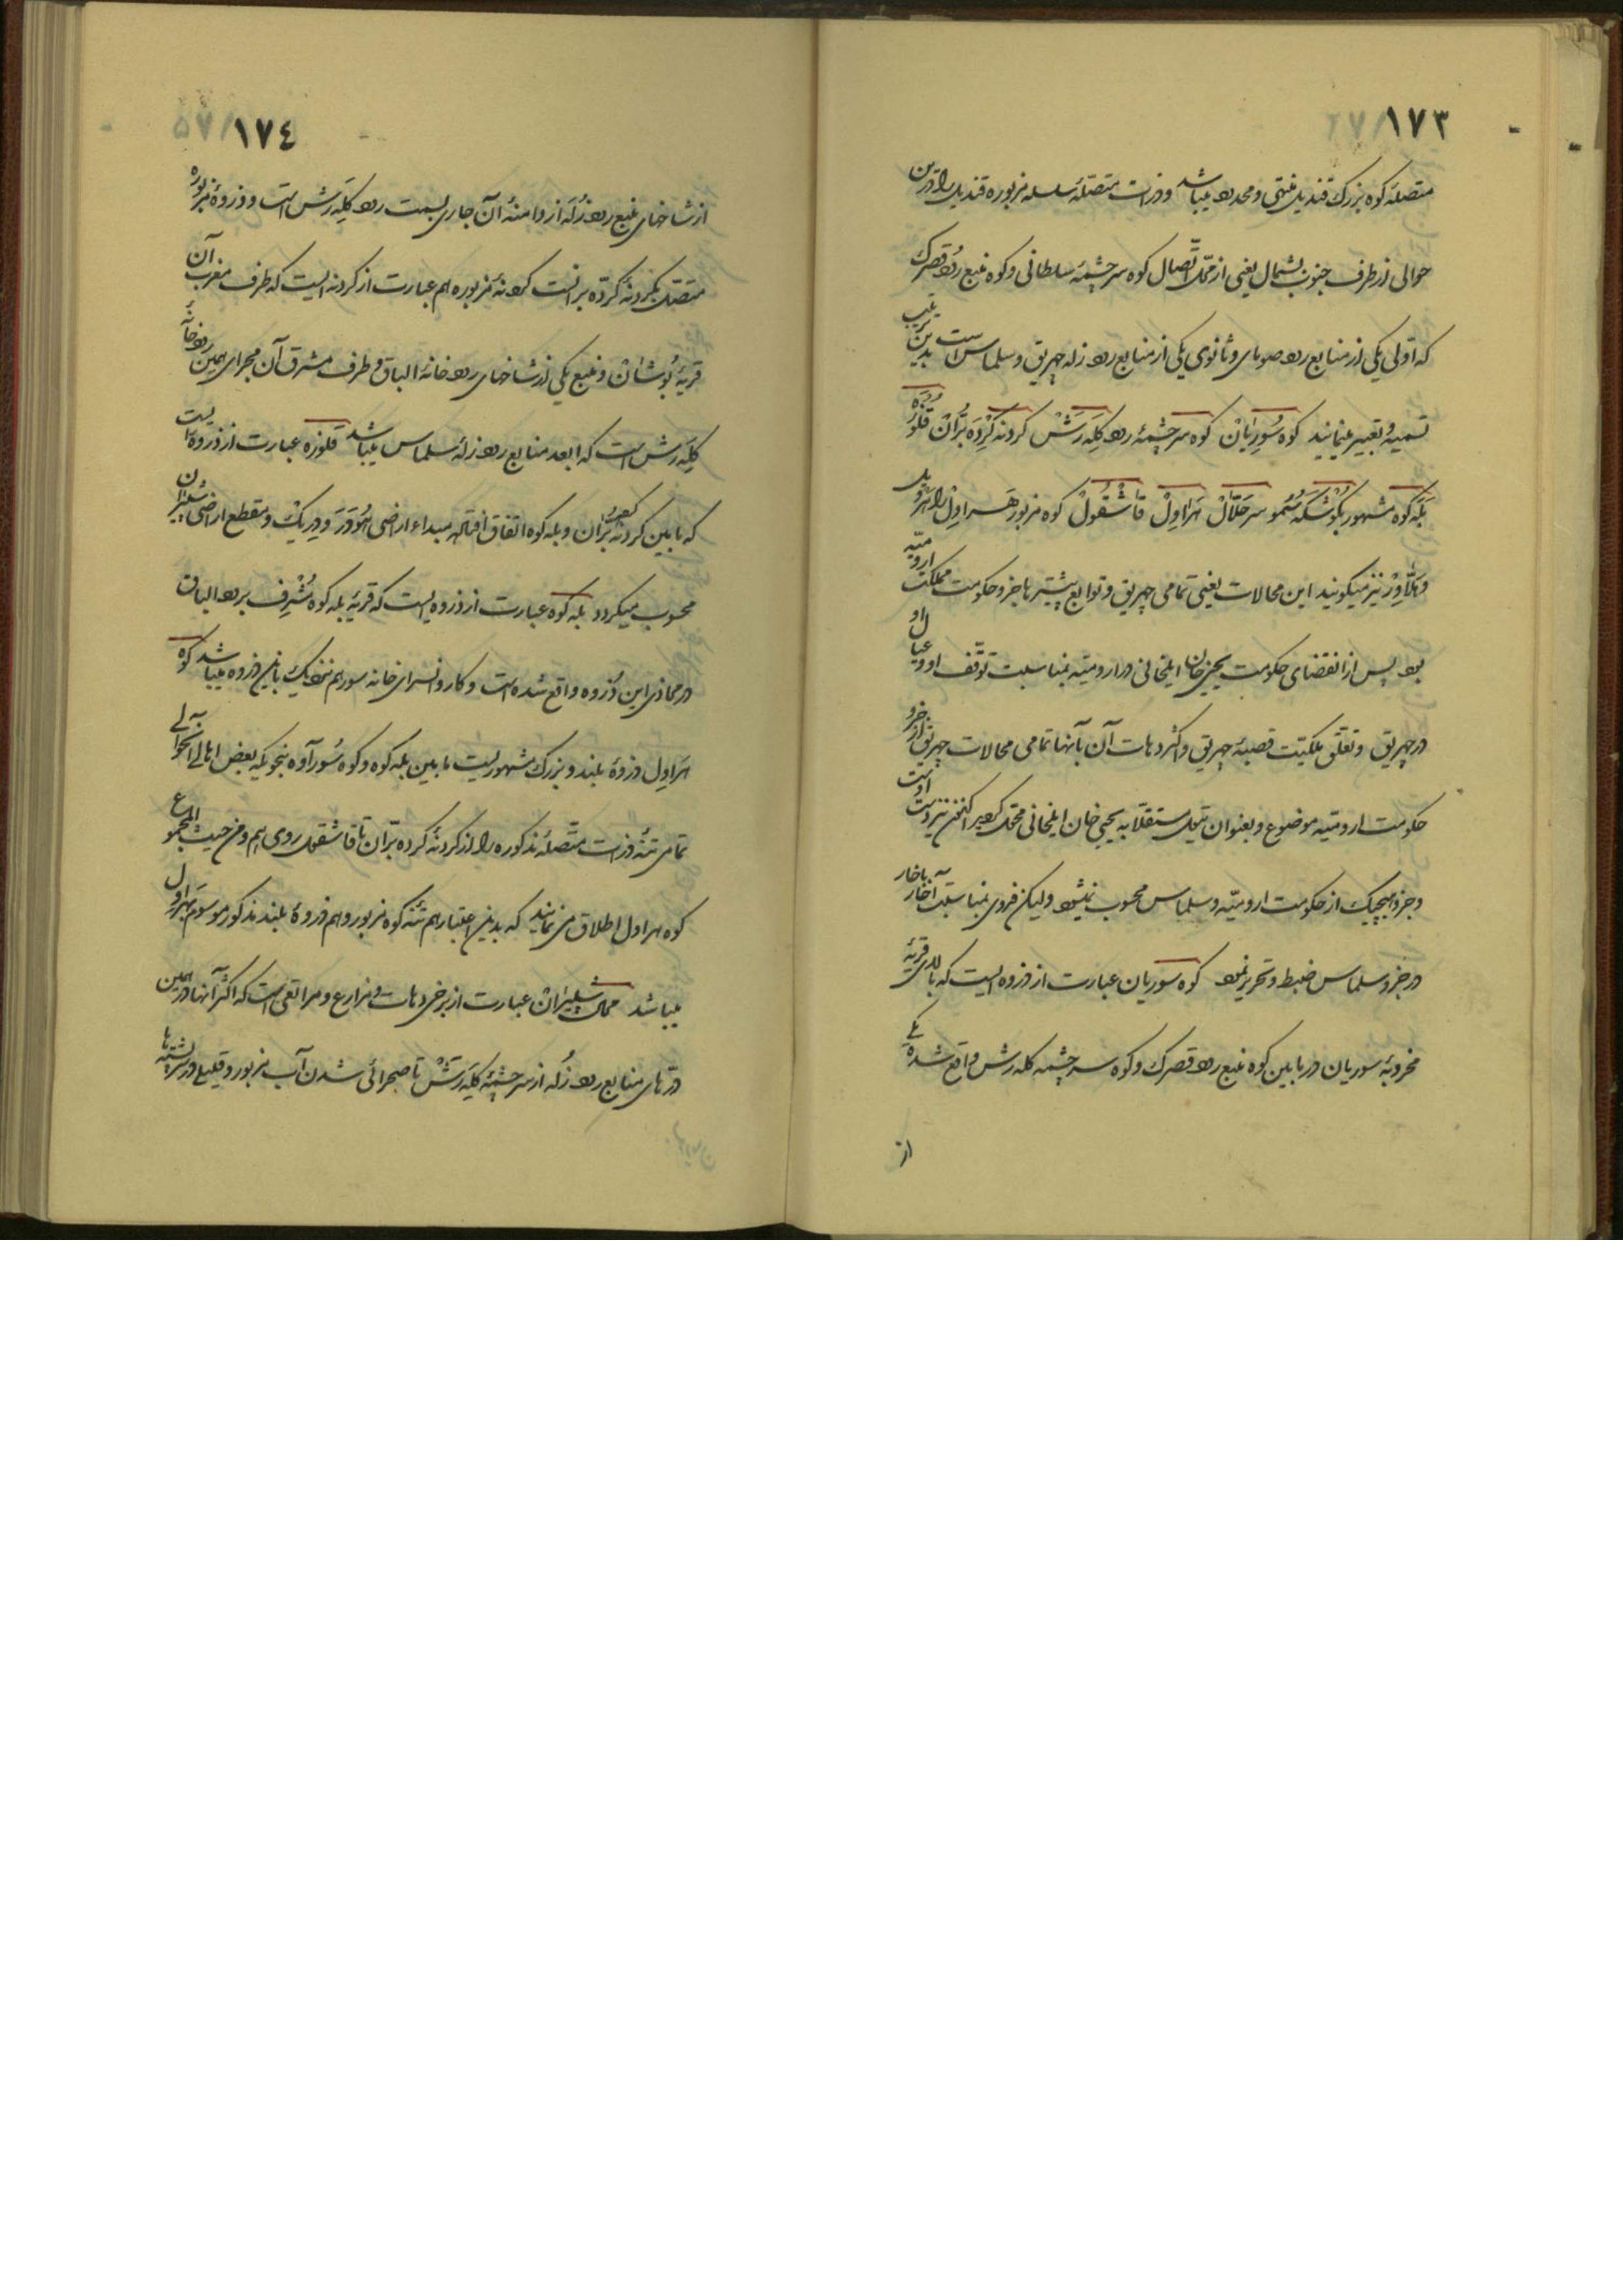 ١٧٣
متصلهٔ کوه بزرك قندیل منتهی و محدود میباشد و ذرات متصلهٔ سلسلهٔ مزبوره قندیل را درین
حوالی از طرف جنوب بشمال یعنی از محل اتصال کوه سر چشمهٔ سلطانی و کوه منبع رود قصرك
که اولی یکی از منابع رود صومای و ثانوی یکی از منابع رود زله چهریق و سلماس است بدین ترتیب
تسمیه و تعبیر مینمایند کوه سُورِیانْ کوه سر چشمهٔ رود کَلِه رَشْ کردنه کُرْدَه بَرّانْ قَلُوْزَه
بَلَه کوه مشهور بگوشکه سُمو سر حَلّالْ هَراوِلْ قاشْقُولْ کوه مزبور هَراوِلْ را
نیز میگویند این محالات یعنی تمامی چهریق و توابع پیشترها جزو حکومت مملکت ارومیّه
بود پس از انقضای حکومت یحیی خان ایلخانی در ارومیّه بمناسبت توقّف او و عیال او
در چهریق و تعلّق ملکیّت قصبهٔ چهریق و اکثر دهات آن بآنها تمامی محالات چهریق از جزو
حکومت ارومیّه موضوع و بعنوان تیول مستقلّا به یحیی خان ایلخانی محوّل کردید اکنون نیز در دست اوست
و جزو هیچیك از حکومت ارومیّه و سلماس محسوب نمیشود ولیکن فدوی بمناسبت
در جزو سلماس ضبط و تحریر نمود کوه سوریان عبارت از ذروه ایست که بالای قریهٔ
مخروبهٔ سوریان در مابین کوه منبع رود قصرك و کوه سر چشمه کله رش واقع شده یکی
از
١٧٤
از شاخهای منبع رود زُلَه از دامنهٔ آن جاری بسمت رود کَلِه رَش است و ذروهٔ مزبوره
متصل بکردنهٔ کُردَه بَرّانست کردنهٔ مزبوره هم عبارت از کردنه ایست که طرف مغرب آن
قریهٔ بُوشانْ و منبع یکی از شاخهای رودخانهٔ الباق و طرف مشرق آن مجرای همین رودخانهٔ
کَلِه رَش است که ابعد منابع رود زلهٔ سلماس میباشد قلوزه عبارت از ذروه ایست
که مابین کردنهٔ کرده بَرّان و بله کوه اتفاق افتاده مبداء اراضی و مقطع اراضی شپیران
محسوب میکردد بله کوه عبارت از ذروه ایست که قریهٔ بله کوه مُشْرِف برود الباق
در محاذی این ذُروه واقع شده است و کاروانسرای خانه سور هم نزدیك باین ذروه میباشد کوه
هَراوِل ذروهٔ بلند و بزرك مشهوریست مابین بله کوه و کوه سُورآوه بنحویکه بعض اهالی آنحوالی
تمامی تنهٔ ذرات متّصلهٔ مذکوره را از کردنهٔ کرده بَرّان تا قاشقول روی هم و من حیث المجموع
کوه هراول اطلاق می نمایند که بدین اعتبار هم تنهٔ کوه مزبور و هم ذروهٔ بلند مذکور موسوم بهَراوِل
میباشد محال شپیرانْ عبارت از برخی دهات و مزارع و مراتعی است که اکثر آنها در همین
درّهای منابع رود زُله از سر چشمهٔ کَلِه رَشْ تا صحرائی شدن آب مزبور و قلیلی در سر پشته ها